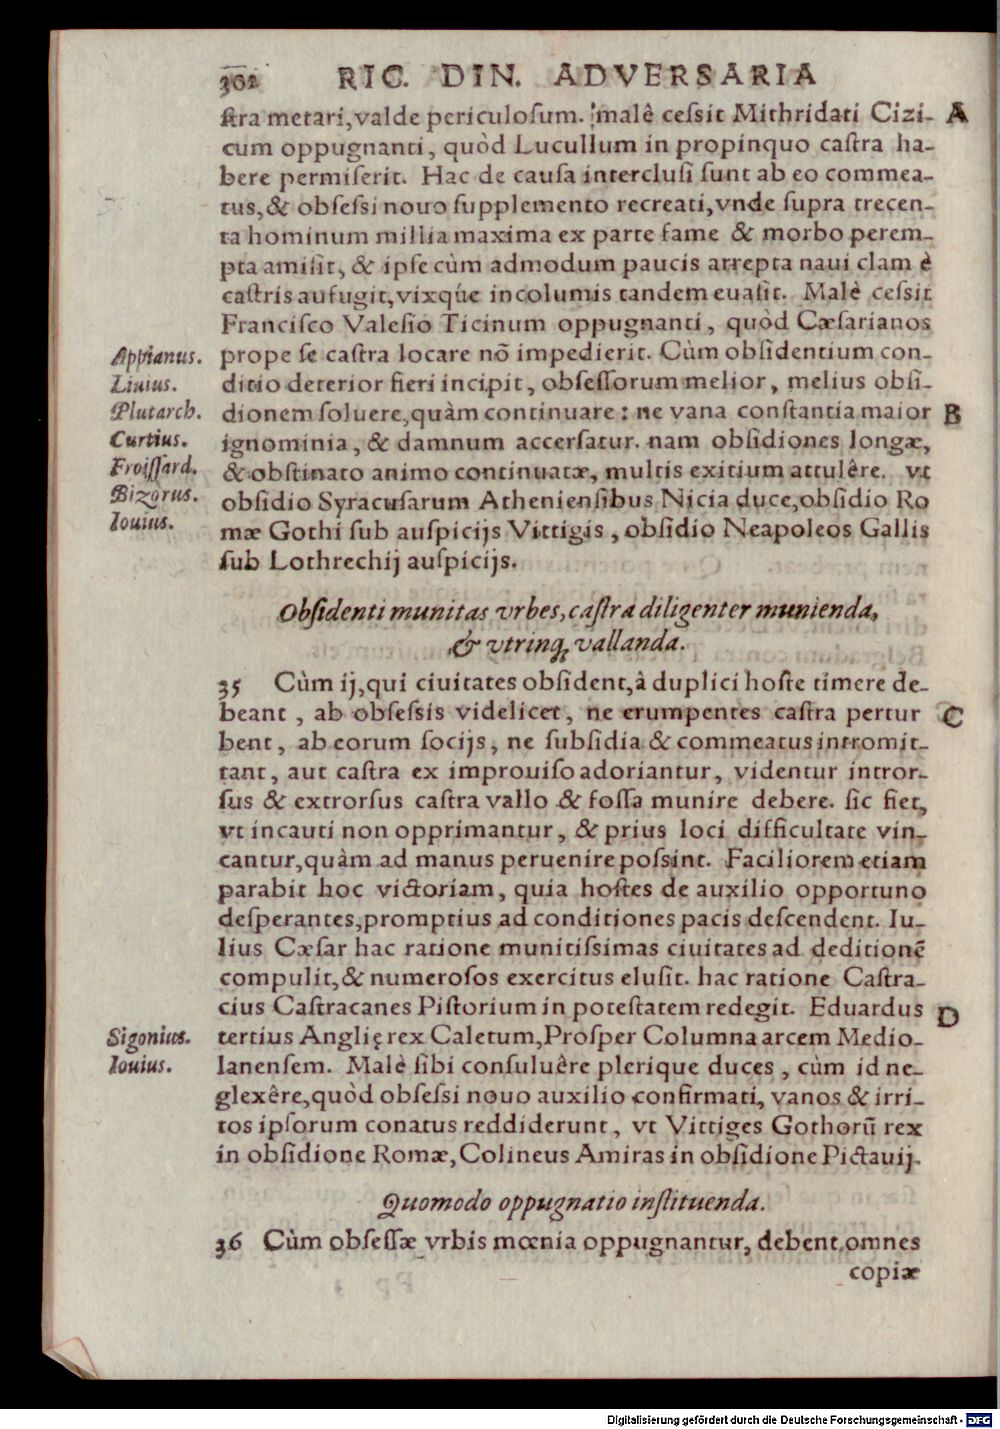 302 RIC. DIN. ADVERSARIA
ſtra metari, valde periculoſum. malê ceſsit Mithridati Cizi- A
cum oppugnanti, quòd Lucullum in propinquo caſtra ha-
bere permiſerit. Hac de cauſa interclusi sunt ab eo commea-
tus, & obſeſsi nouo ſupplemento recreati, vnde ſupra trecen-
ta hominum millia maxima ex parte fame & morbo perem-
pta amiſit, & ipſe cùm admodum paucis arrepta naui clam è
caſtris aufugit, vixq́ue incolumis tandem euaſit. Malè ceſsit
Franciſco Valeſio Ticinum oppugnanti, quòd Cæſarianos
Appianus. prope ſe caſtra locare nō impedierit. Cùm obſidentium con-
Liuius. ditio deterior fieri incipit, obſeſſorum melior, melius obſi-
Plutarch. dionem ſoluere, quàm continuare: ne vana conſtantia maior B
Curtius. ignominia, & damnum accerſatur. nam obſidiones longæ,
Froiſſard. & obſtinato animo continuatæ, multis exitium attulêre. vt
Bizorus. obſidio Syracuſarum Athenienſibus Nicia duce, obſidio Ro
Iouius. mæ Gothi ſub auſpicijs Vittigis, obſidio Neapoleos Gallis
ſub Lothrechij auſpicijs.
Obſidenti munitas vrbes, caſtra diligenter munienda,
& vtrinq; vallanda.
35 Cùm ij, qui ciuitates obſident, à duplici hoſte timere de-
beant, ab obſeſsis videlicet, ne erumpentes caſtra pertur C
bent, ab eorum ſocijs, ne ſubſidia & commeatus intromit-
tant, aut caſtra ex improuiſo adoriantur, videntur intror-
ſus & extrorſus caſtra vallo & foſſa munire debere. ſic fiet,
vt incauti non opprimantur, & prius loci difficultate vin-
cantur, quàm ad manus peruenire poſsint. Faciliorem etiam
parabit hoc victoriam, quia hoſtes de auxilio opportuno
deſperantes, promptius ad conditiones pacis deſcendent. Iu-
lius Cæſar hac ratione munitiſsimas ciuitates ad deditionē
compulit, & numeroſos exercitus eluſit. hac ratione Caſtra-
cius Caſtracanes Piſtorium in poteſtatem redegit. Eduardus D
Sigonius. tertius Anglię rex Caletum, Proſper Columna arcem Medio-
Iouius. lanenſem. Malè ſibi conſuluêre plerique duces, cùm id ne-
glexêre, quòd obſeſsi nouo auxilio confirmati, vanos & irri-
tos ipſorum conatus reddiderunt, vt Vittiges Gothorū rex
in obſidione Romæ, Colineus Amiras in obſidione Pictauij.
Quomodo oppugnatio inſtituenda.
36 Cùm obſeſſæ vrbis mœnia oppugnantur, debent omnes
copiæ
Digitalisierung gefördert durch die Deutsche Forschungsgemeinschaft - DFG